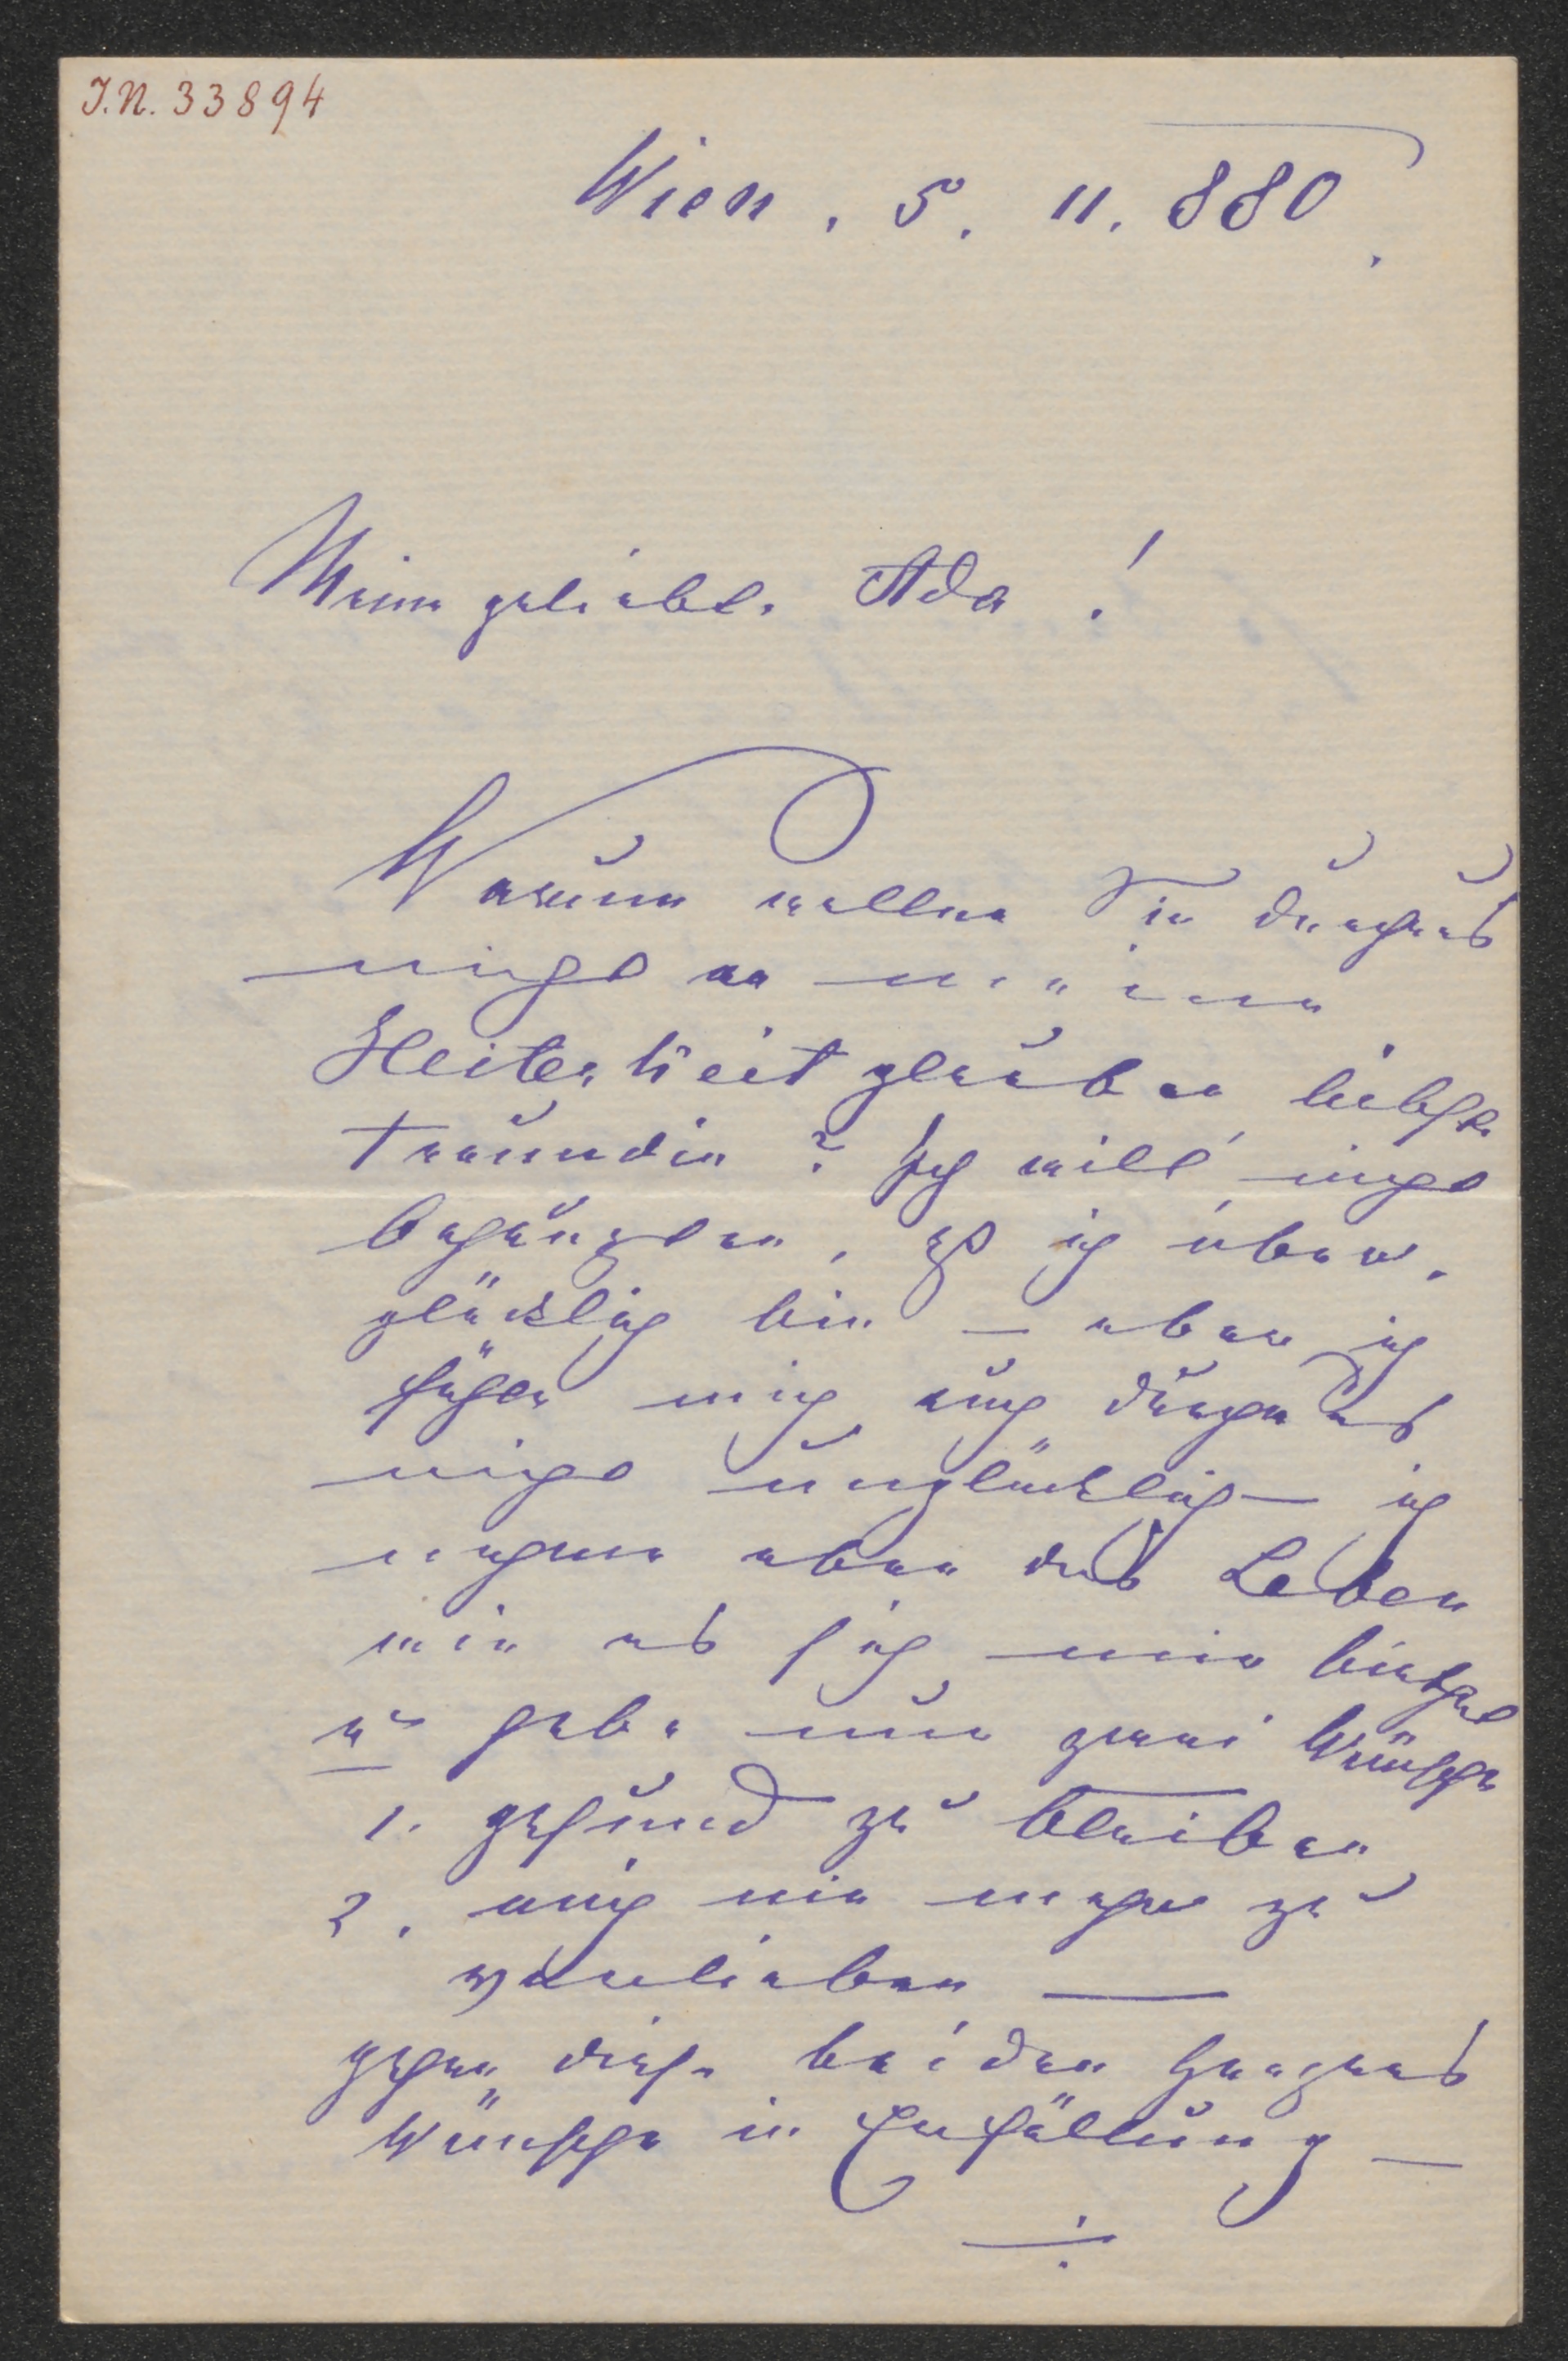 J.N. 33894
Wien, 5. 11. 880.
Meine geliebte Ada!
Warum wollen Sie durchaus
nicht an meine
Heiterkeit glauben liebste
Freundin? Ich will nicht
behaupten, daß ich über¬
glücklich bin — aber ich
fühle mich auch durchaus
nicht unglücklich — ich
nehme eben das Leben
wie es sich mir bietet
u habe nur zwei Wünsche
1. gesund zu bleiben
2. mich nie mehr zu
verlieben —
gehen diese beiden Herzens
Wünsche in Erfüllung —